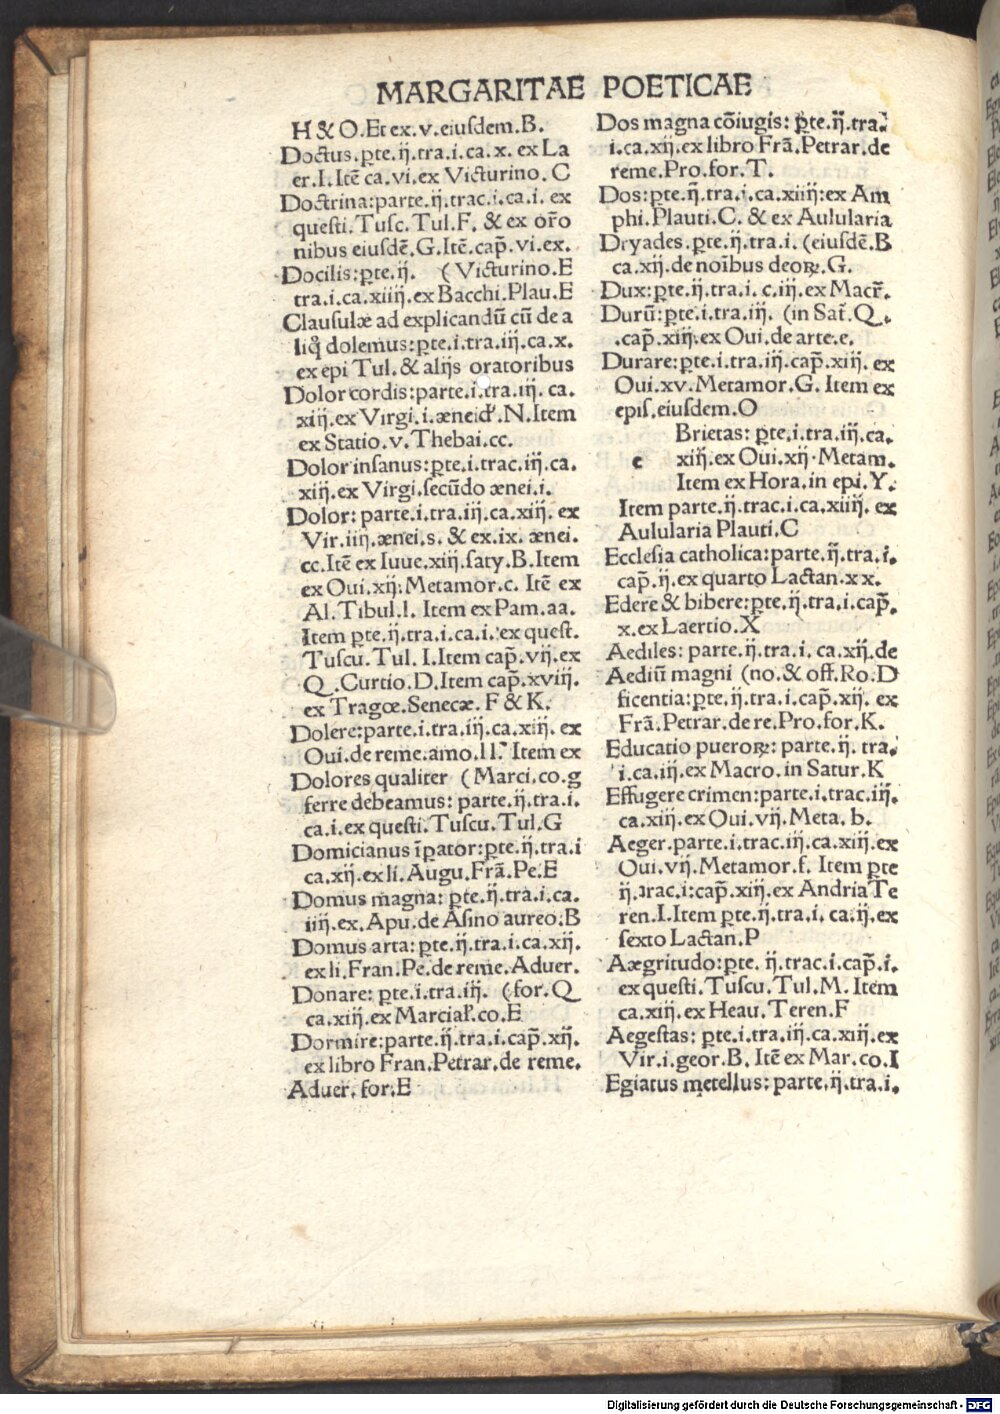 MARGARITAE POETICAE
H & O. Et ex. v. eiuſdem. B.
Doctus. ꝑte. ij. tra. i. ca. x. ex La
er. I. Itē ca. vi. ex Victurino. C
Doctrina: parte. ij. trac. i. ca. i. ex
queſti. Tuſc. Tul. F. & ex or̄o
nibus eiuſdē. G. Itē. cap̄. vi. ex.
Docilis: ꝑte. ij. ( Victurino. E
tra. i. ca. xiiij. ex Bacchi. Plau. E
Clauſulæ ad explicandū cū de a
liq̊ dolemus: ꝑte. i. tra. iij. ca. x.
ex epi Tul. & alijs oratoribus
Dolor cordis: parte. i. tra. iij. ca.
xiij. ex Virgi. i. æneid'. N. Item
ex Statio. v. Thebai. cc.
Dolor inſanus: ꝑte. i. trac. iij. ca.
xiij. ex Virgi. ſecūdo ænei. i.
Dolor: parte. i. tra. iij. ca. xiij. ex
Vir. iiij. ænei. s. & ex. ix. ænei.
cc. Itē ex Iuue. xiij. ſaty. B. Item
ex Oui. xij. Metamor. c. Itē ex
Al. Tibul. l. Item ex Pam. aa.
Item ꝑte. ij. tra. i. ca. i. ex queſt.
Tuſcu. Tul. I. Item cap̄. vij. ex
Q. Curtio. D. Item cap̄. xviij.
ex Tragœ. Senecæ. F & K.
Dolere: parte. i. tra. iij. ca. xiij. ex
Oui. de reme. amo. ll. Item ex
Dolores qualiter ( Marci. co. g
ferre debeamus: parte. ij. tra. i.
ca. i. ex queſti. Tuſcu. Tul. G
Domicianus īpator: ꝑte. ij. tra. i
ca. xij. ex li. Augu. Frā. Pe. E
Domus magna: ꝑte. ij. tra. i. ca.
iiij. ex. Apu. de Aſino aureo. B
Domus arta: ꝑte. ij. tra. i. ca. xij.
ex li. Fran. Pe. de reme. Aduer.
Donare: ꝑte. i. tra. iij. ( for. Q
ca. xiij. ex Marcial'. co. E
Dormire: parte. ij. tra. i. cap̄. xij.
ex libro Fran. Petrar. de reme.
Aduer. for. E
Dos magna cōiugis: ꝑte. ij. tra.
i. ca. xij. ex libro Frā. Petrar. de
reme. Pro. for. T.
Dos: ꝑte. ij. tra. i. ca. xiiij: ex Am
phi. Plauti. C. & ex Aulularia
Dryades. ꝑte. ij. tra. i. ( eiuſdē. B
ca. xij. de noībus deoꝝ. G.
Dux: ꝑte. ij. tra. i. c. iij. ex Macr̄.
Durū: ꝑte. i. tra. iij. ( in Sat̄. Q.
cap̄. xiij. ex Oui. de arte. e.
Durare: ꝑte. i. tra. iij. cap̄. xiij. ex
Oui. xv. Metamor. G. Item ex
epiſ. eiuſdem. O
Brietas: ꝑte. i. tra. iij. ca.
e xiij. ex Oui. xij. Metam.
Item ex Hora. in epi. Y.
Item parte. ij. trac. i. ca. xiiij. ex
Aulularia Plauti. C
Eccleſia catholica: parte. ij. tra. i.
cap̄. ij. ex quarto Lactan. xx.
Edere & bibere: ꝑte. ij. tra. i. cap̄.
x. ex Laertio. X
Aediles: parte. ij. tra. i. ca. xij. de
Aediū magni ( no. & off. Ro. D
ficentia: ꝑte. ij. tra. i. cap̄. xij. ex
Frā. Petrar. de re. Pro. for. K.
Educatio pueroꝝ: parte. ij. tra.
i. ca. iij. ex Macro. in Satur. K
Effugere crimen: parte. i. trac. iij.
ca. xiij. ex Oui. vij. Meta. b.
Aeger. parte. i. trac. iij. ca. xiij. ex
Oui. vij. Metamor. f. Item ꝑte
ij. trac. i: cap̄. xiij. ex Andria Te
ren. I. Item ꝑte. ij. tra. i. ca. ij. ex
ſexto Lactan. P
Aægritudo: ꝑte. ij. trac. i. cap̄. i.
ex queſti. Tuſcu. Tul. M. Item
ca. xiij. ex Heau. Teren. F
Aegeſtas: ꝑte. i. tra. iij. ca. xiij. ex
Vir. i. geor. B. Itē ex Mar. co. I
Egiatus metellus: parte. ij. tra. i.
Digitalisierung gefördert durch die Deutsche Forschungsgemeinschaft - DFG